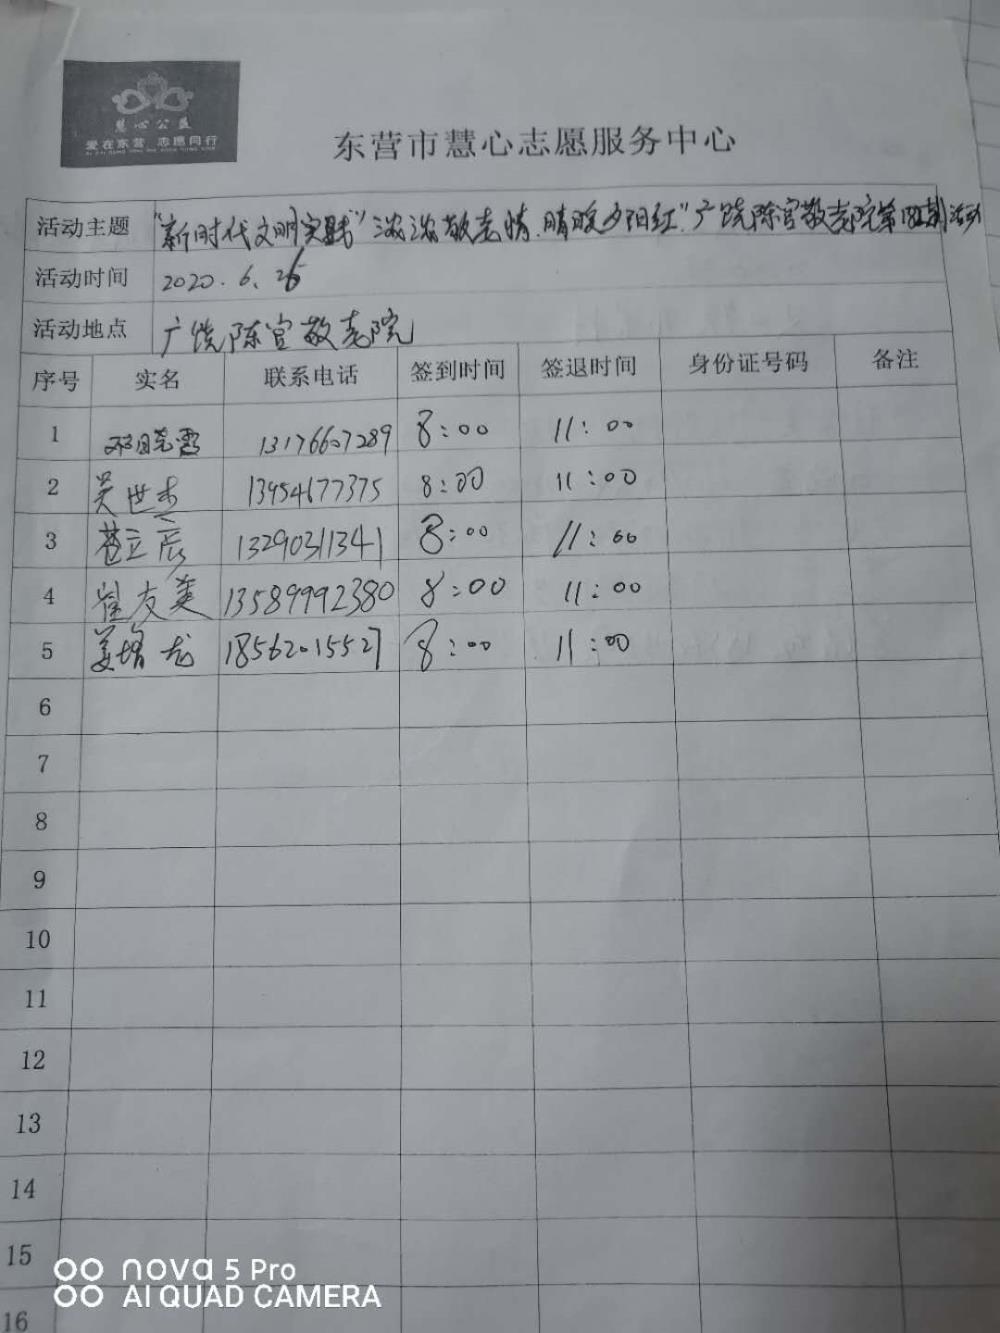 慧心公益
爱在东营 志愿同行
东营市慧心志愿服务中心
活动主题 "新时代文明实践" "浓浓敬老情.情暖夕阳红". 广饶陈官敬老院第 期活动
活动时间 2020.6.26
活动地点 广饶陈官敬老院
序号 实名 联系电话 签到时间 签退时间 身份证号码 备注
1 邓晓雷 13176607289 8:00 11:00
2 吴世杰 13954677375 8:00 11:00
3 苍立辰 13290311341 8:00 11:00
4 崔友美 13589992380 8:00 11:00
5 姜增龙 18562015527 8:00 11:00
6
7
8
9
10
11
12
13
14
15
16
nova 5 Pro
AI QUAD CAMERA